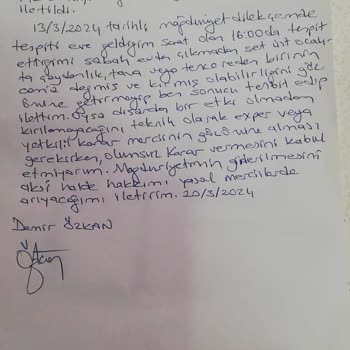 iletildi.
13/3/2024 tarihli mağduriyet dilekçemde
tespiti eve geldiğim saat den 16:00da tespit
ettiğimi sabah evden çıkmadan set üst ocağı-
çaydanlık, tava veya tencereden birinin
camia değmiş ve kırmış olabilirliğini göz
önüne getirmeyip ben sonucu tesbit edip
ilettim. Oysa dışardan bir etki olmadan
kırılamayacağını teknik olarak exper veya
yetkili karar merciinin göz önüne alması
gerekirken, olumsuz karar vermesini kabul
etmiyorum. Mağduriyetimin giderilmesini
aksi halde hakkımı yasal mercilerde
arıyacağımı iletirim. 20/3/2024
Demir ÖZKAN